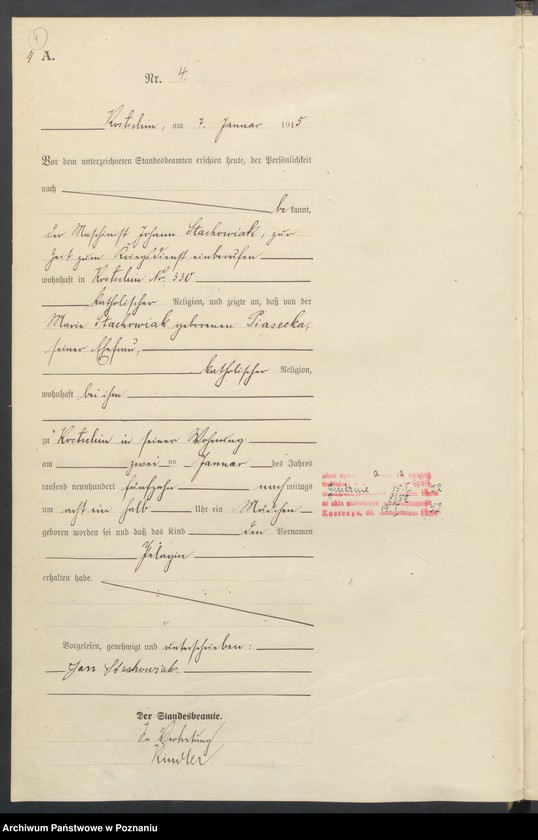 4
4 A.
Nr. 4.
Kostschin, am 7. Januar 1915
Vor dem unterzeichneten Standesbeamten erschien heute, der Persönlichkeit
nach
be kannt,
der Maschinist Johann Stachowiak, zur
Zeit zum Kriegsdienst einberufen
wohnhaft in Kostschin No. 330
katholischer Religion, und zeigte an, daß von der
Marie Stachowiak geborenen Piasecka,
seiner Ehefrau,
katholischer Religion,
wohnhaft bei ihm
zu Kostschin in seiner Wohnung
am zwei ten Januar des Jahres
tausend neunhundert fünfzehn nach mittags
um acht ein halb Uhr ein Mädchen
geboren worden sei und daß das Kind den Vornamen
Pelagia
erhalten habe.
Vorgelesen, genehmigt und unterschrieben:
Jan Stachowiak.
Der Standesbeamte.
In Vertretung
Kindler
Archiwum Państwowe w Poznaniu